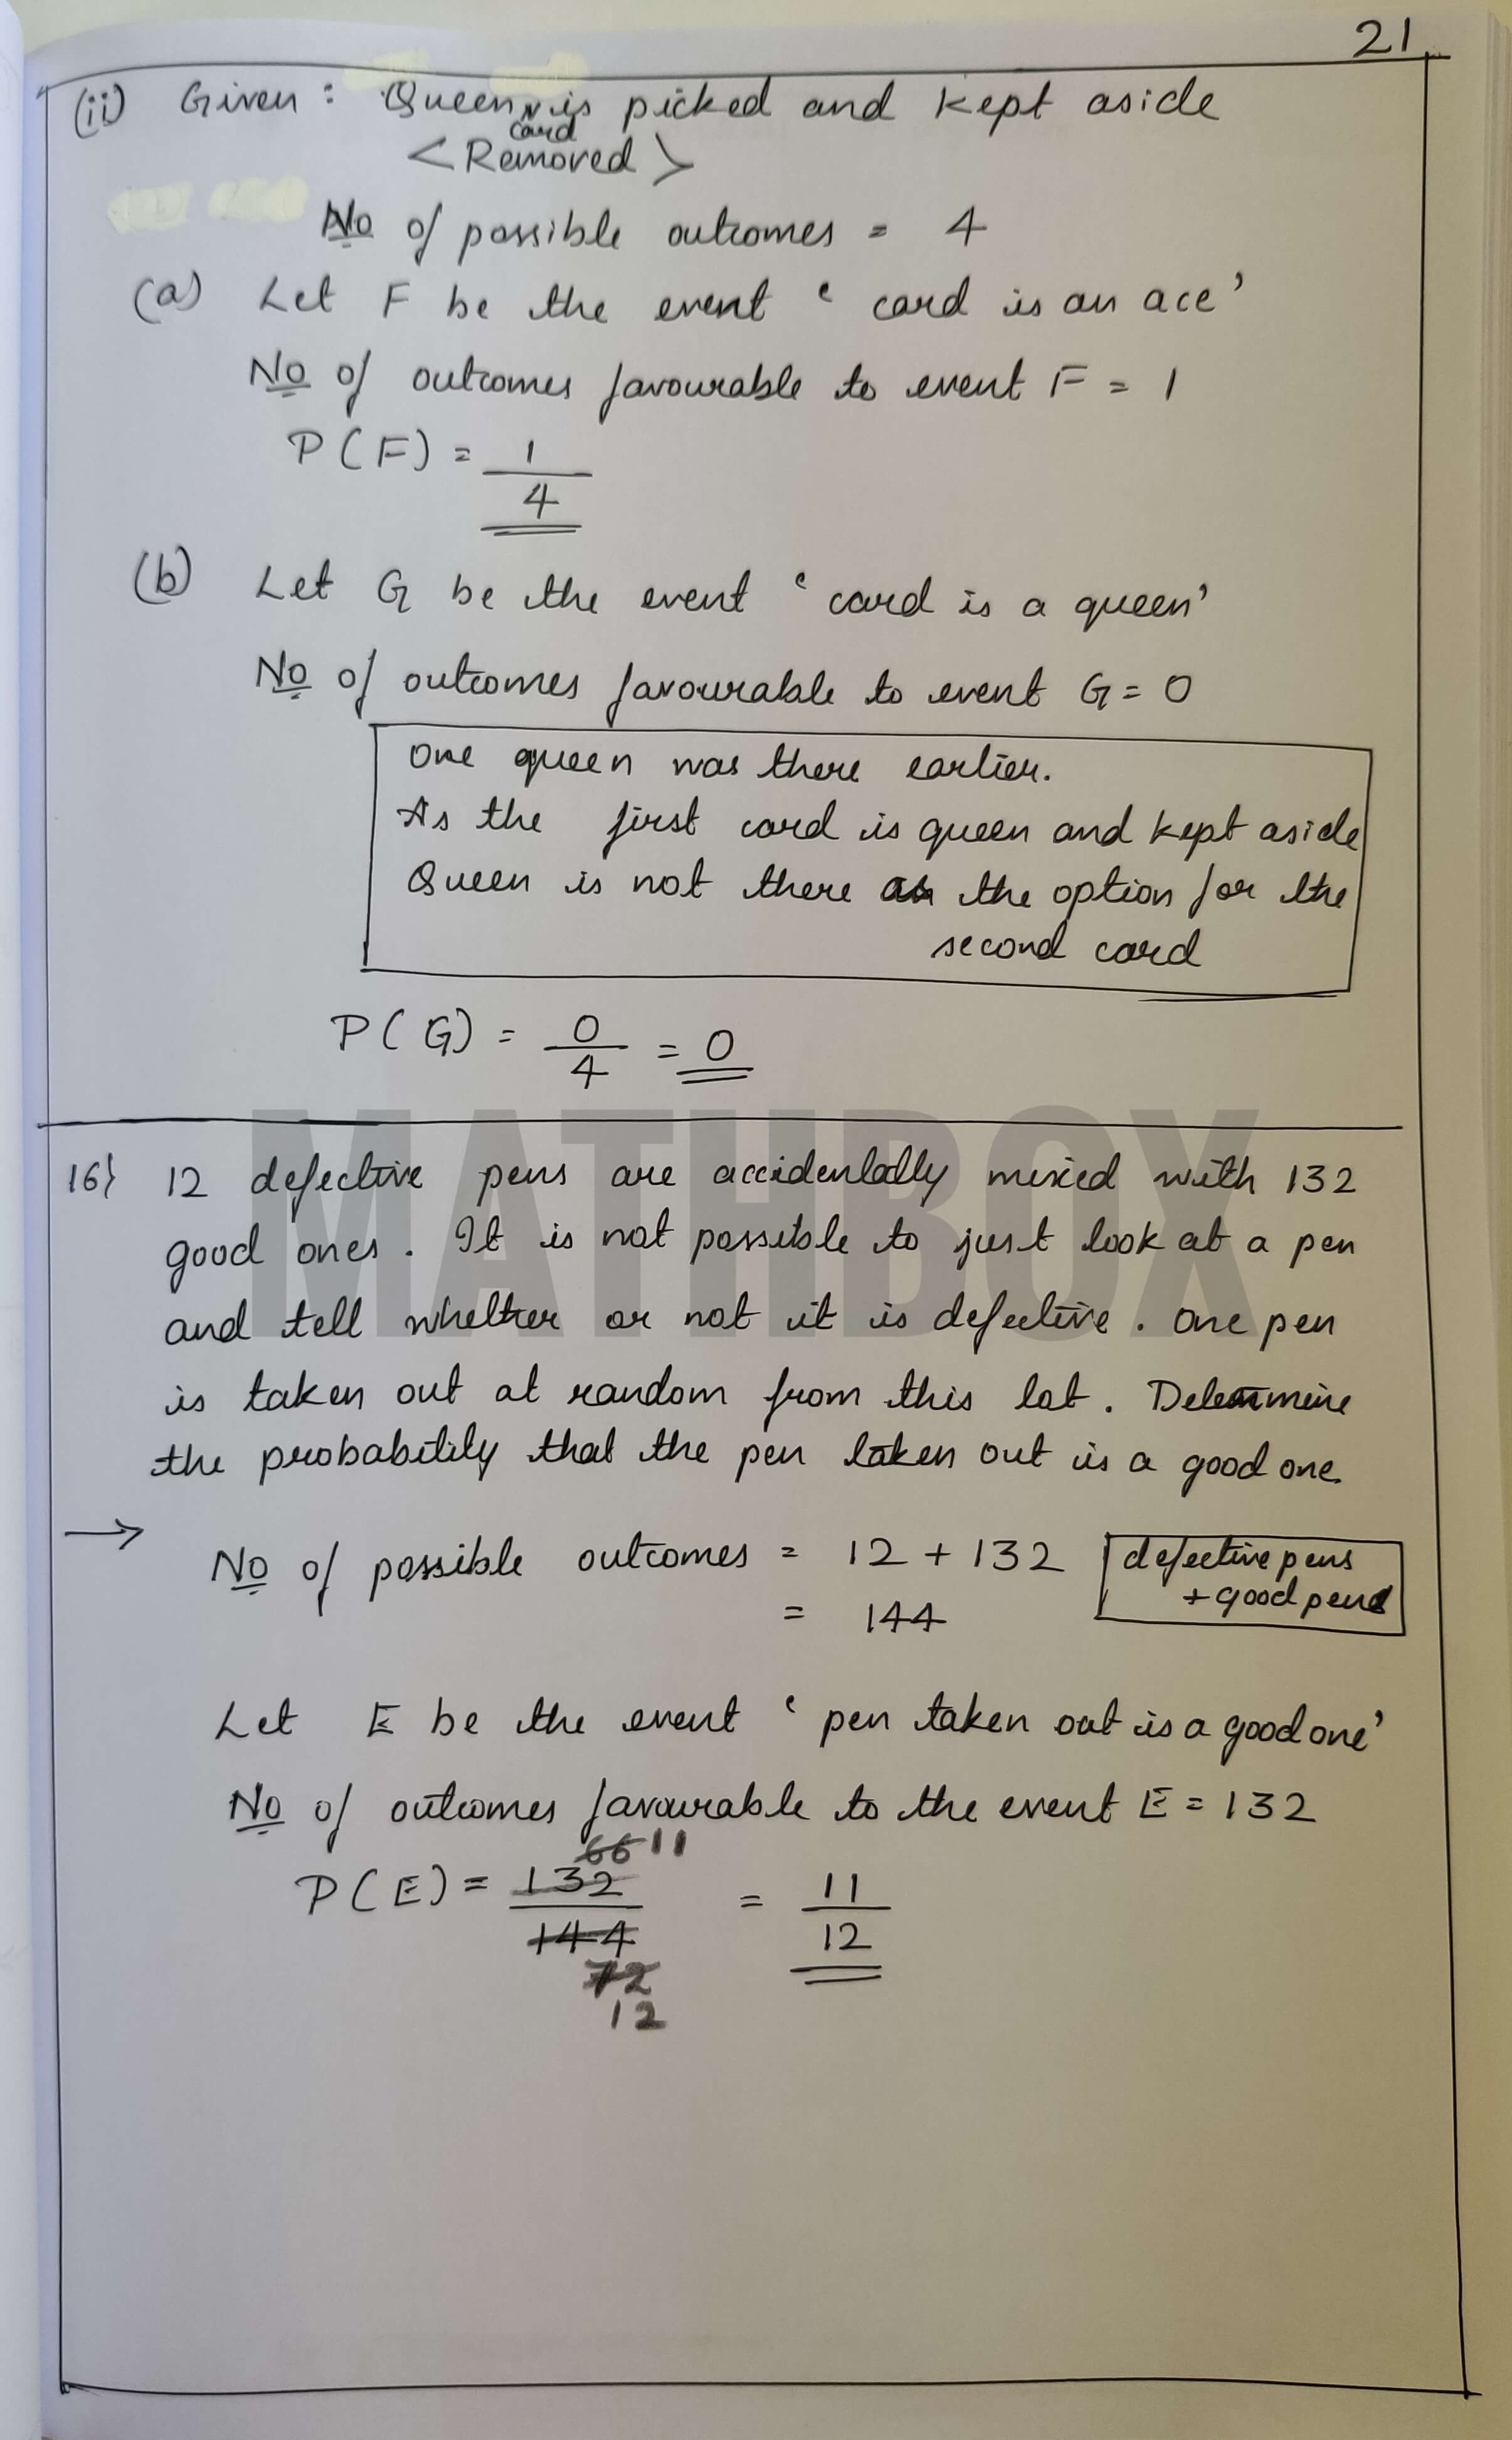 21
(ii) Given : Queen card is picked and kept aside
<Removed>
No of possible outcomes = 4
(a) Let F be the event ‘ card is an ace ’
No of outcomes favourable to event F = 1
P(F) = 1/4
(b) Let G be the event ‘ card is a queen’
No of outcomes favourable to event G = 0
One queen was there earlier.
As the first card is queen and kept aside
Queen is not there as the option for the
second card
P(G) = 0/4 = 0
MATHBOX
16} 12 defective pens are accidentally mixed with 132
good ones. It is not possible to just look at a pen
and tell whether or not it is defective. One pen
is taken out at random from this lot. Determine
the probability that the pen taken out is a good one.
→
No of possible outcomes = 12 + 132
defective pens
+ good pens
= 144
Let E be the event ‘ pen taken out is a good one’
No of outcomes favourable to the event E = 132
66 11
P(E) = 132/144 = 11/12
72
12